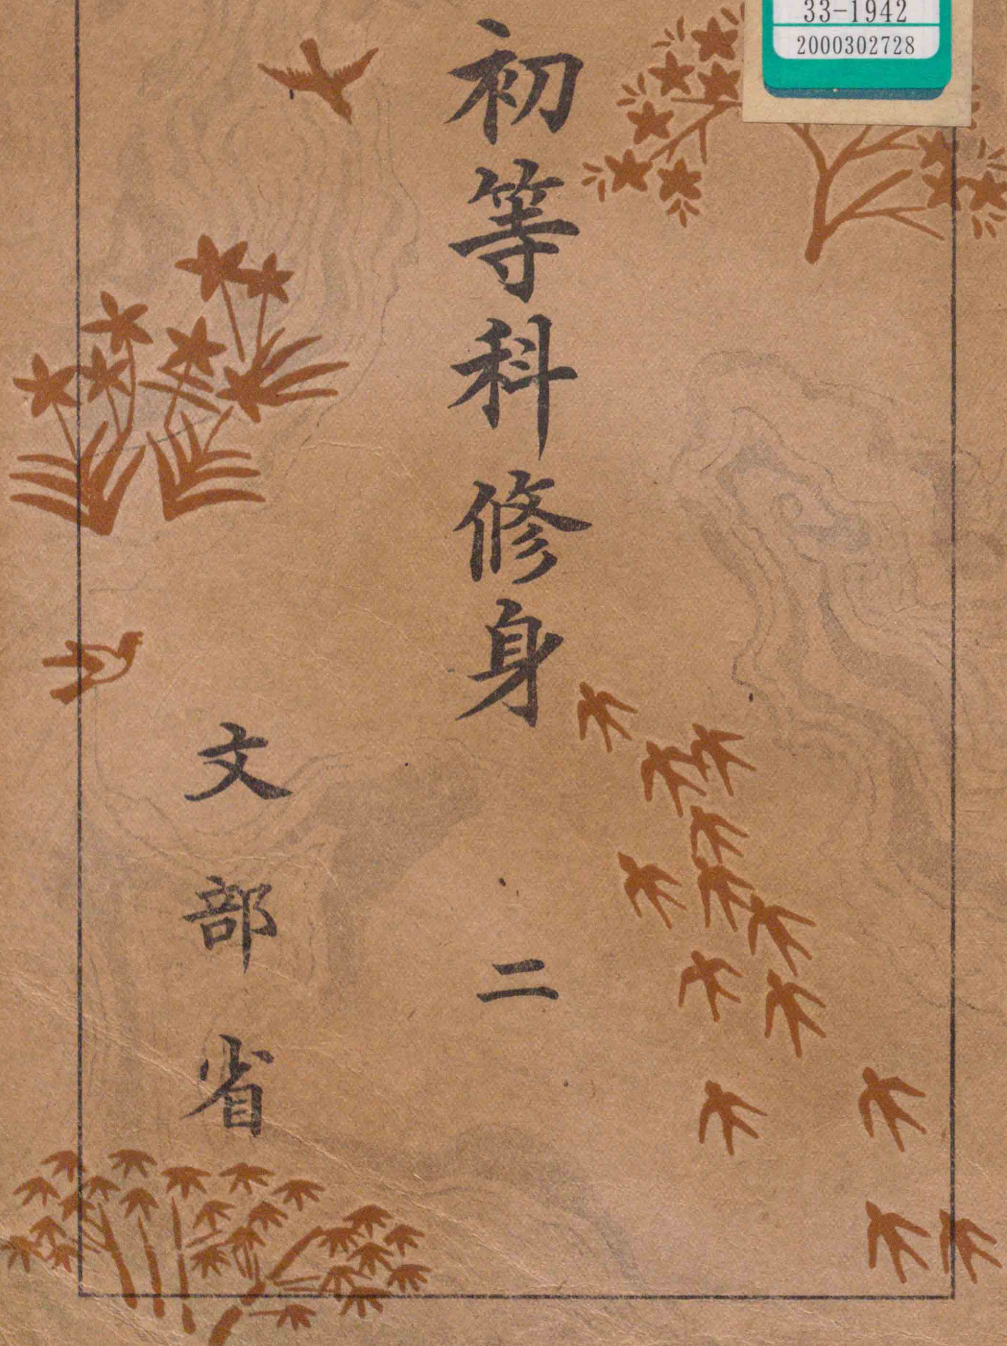 33-1942
2000302728
初等科修身
二
文部省